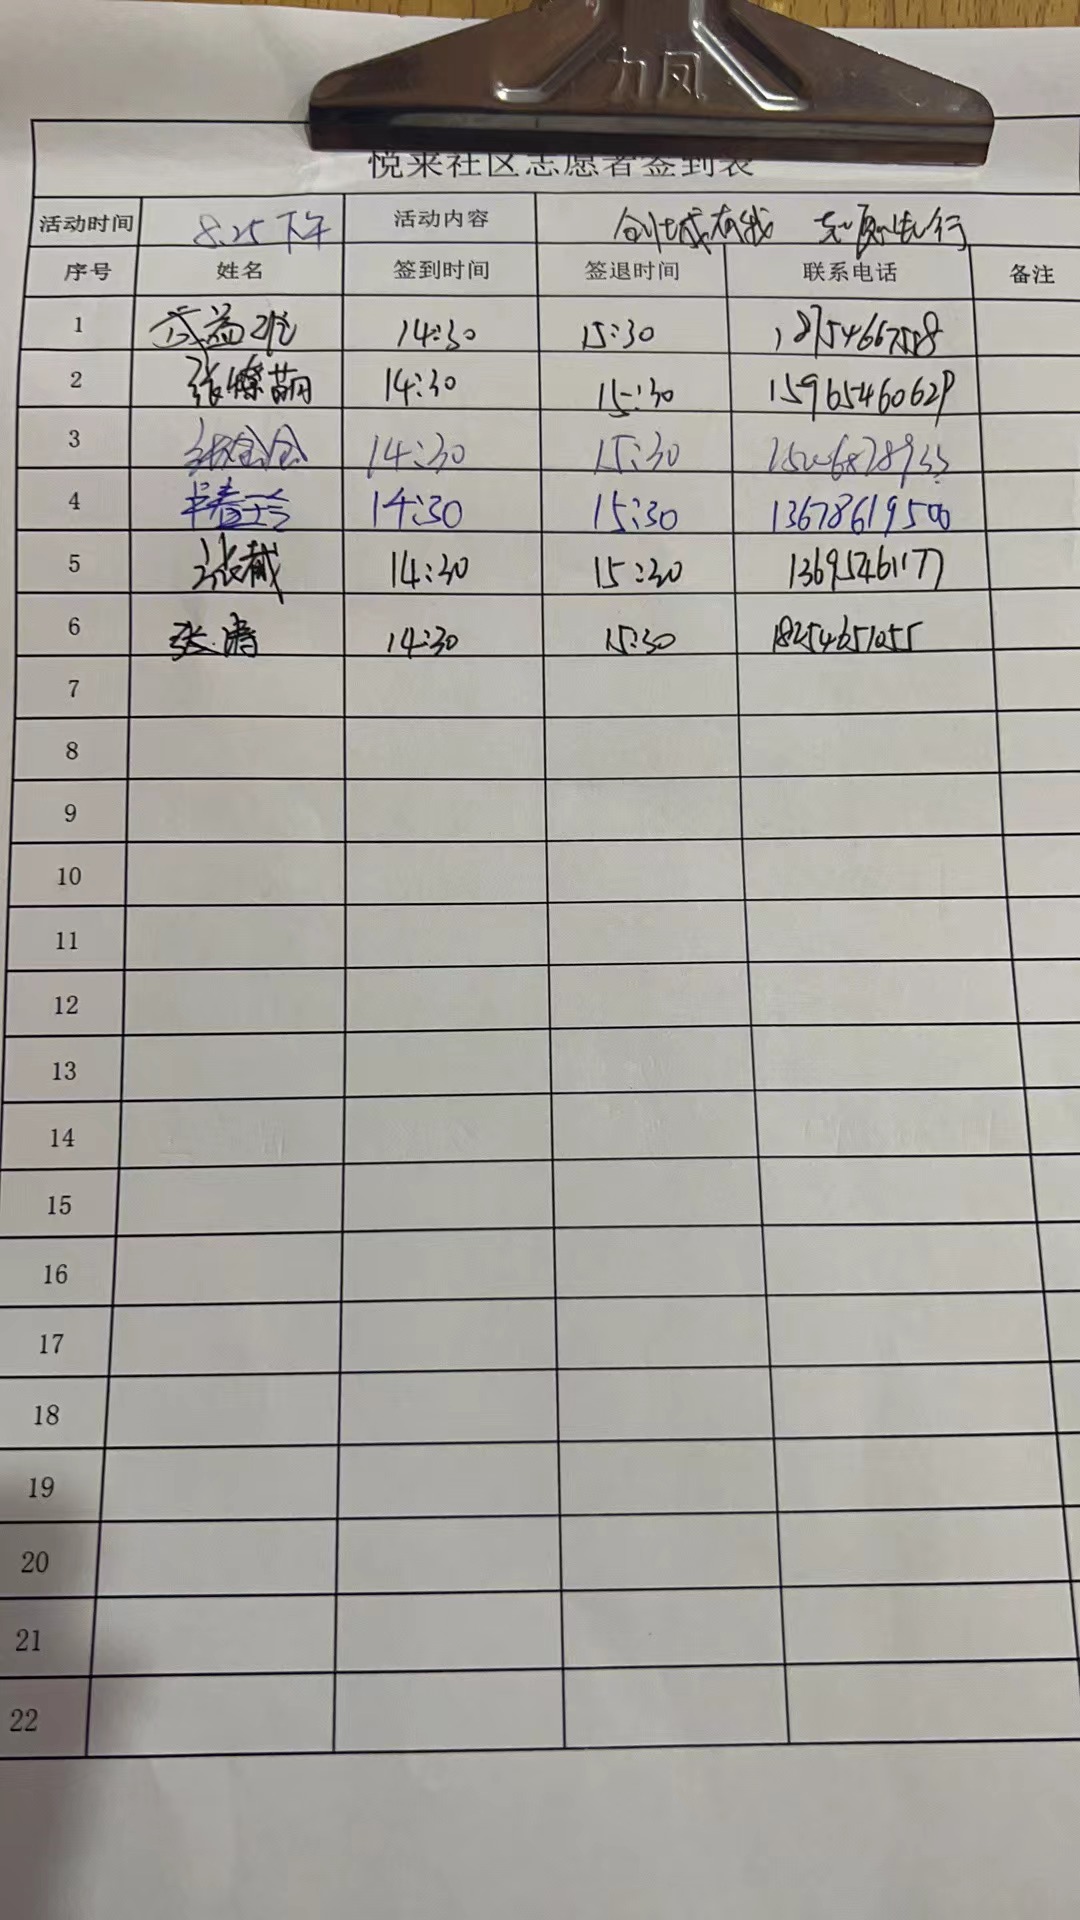 力凤
悦来社区志愿者签到表
活动时间 8.25下午 活动内容 创城有我 志愿先行
序号 姓名 签到时间 签退时间 联系电话 备注
1 14:30 15:30 18754667558
2 张燎萌 14:30 15:30 15965460629
3 14:30 15:30
4 14:30 15:30 13678619500
5 14:30 15:30 13695461177
6 张涛 14:30 15:30 18254651055
7
8
9
10
11
12
13
14
15
16
17
18
19
20
21
22